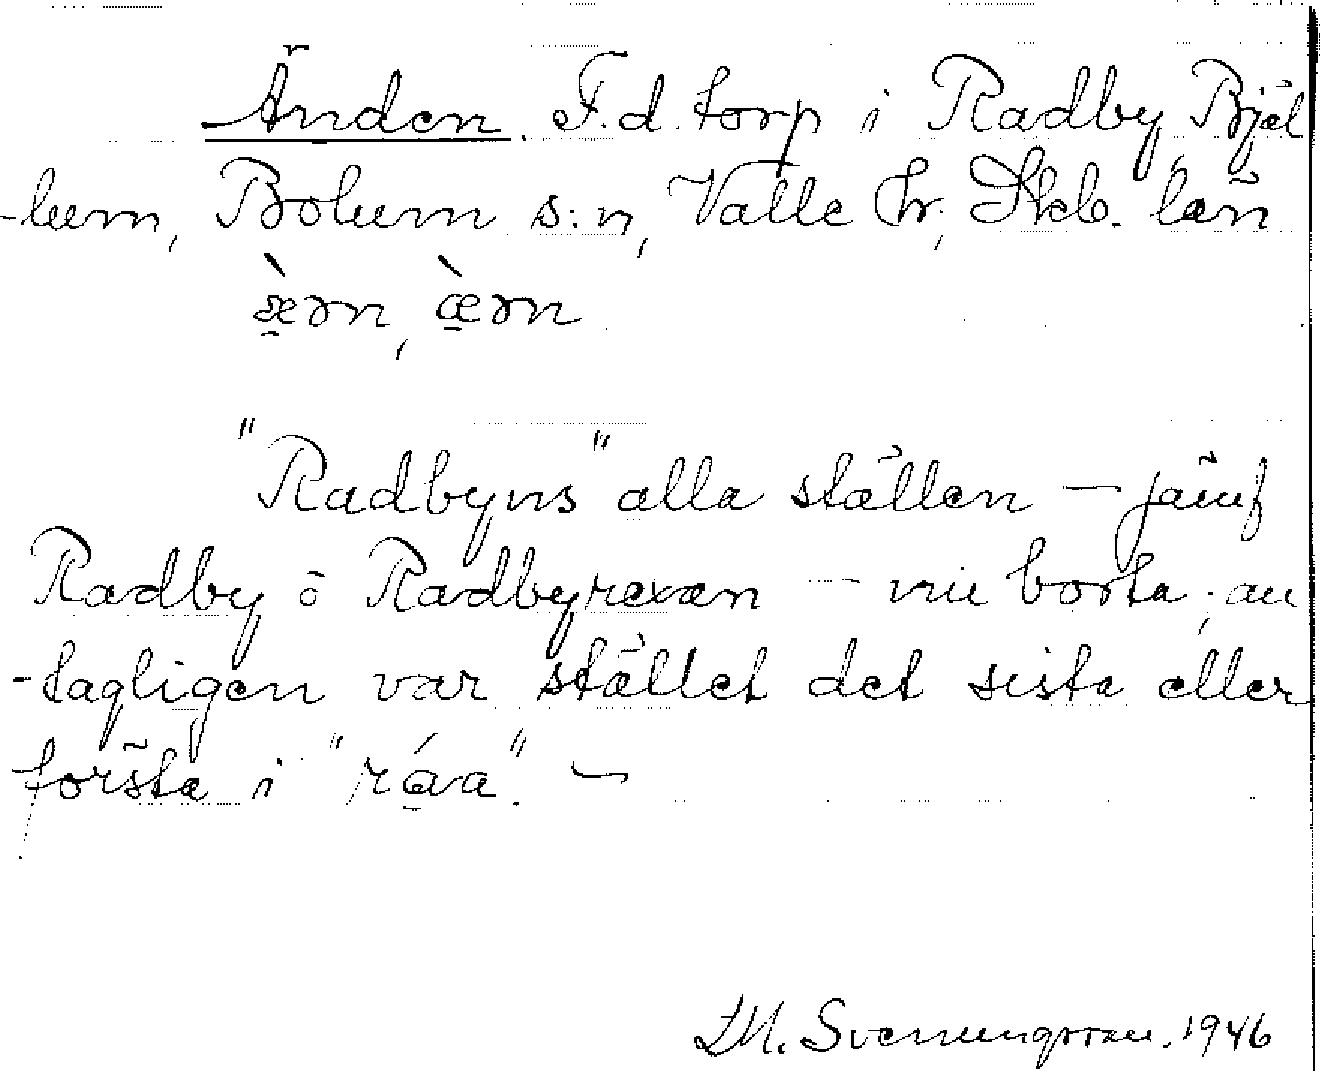 Änden. F.d. torp i Radby, Bjäl
-lum, Bolum s:n, Valle hr, Skb. län
æ̀ən, æ̀ən
"Radbyns" alla ställen – jämf
Radby o Radbyrexan – nu borta; an
-tagligen var stället det sista eller
första i "ráa". –
M. Svenungsson. 1946